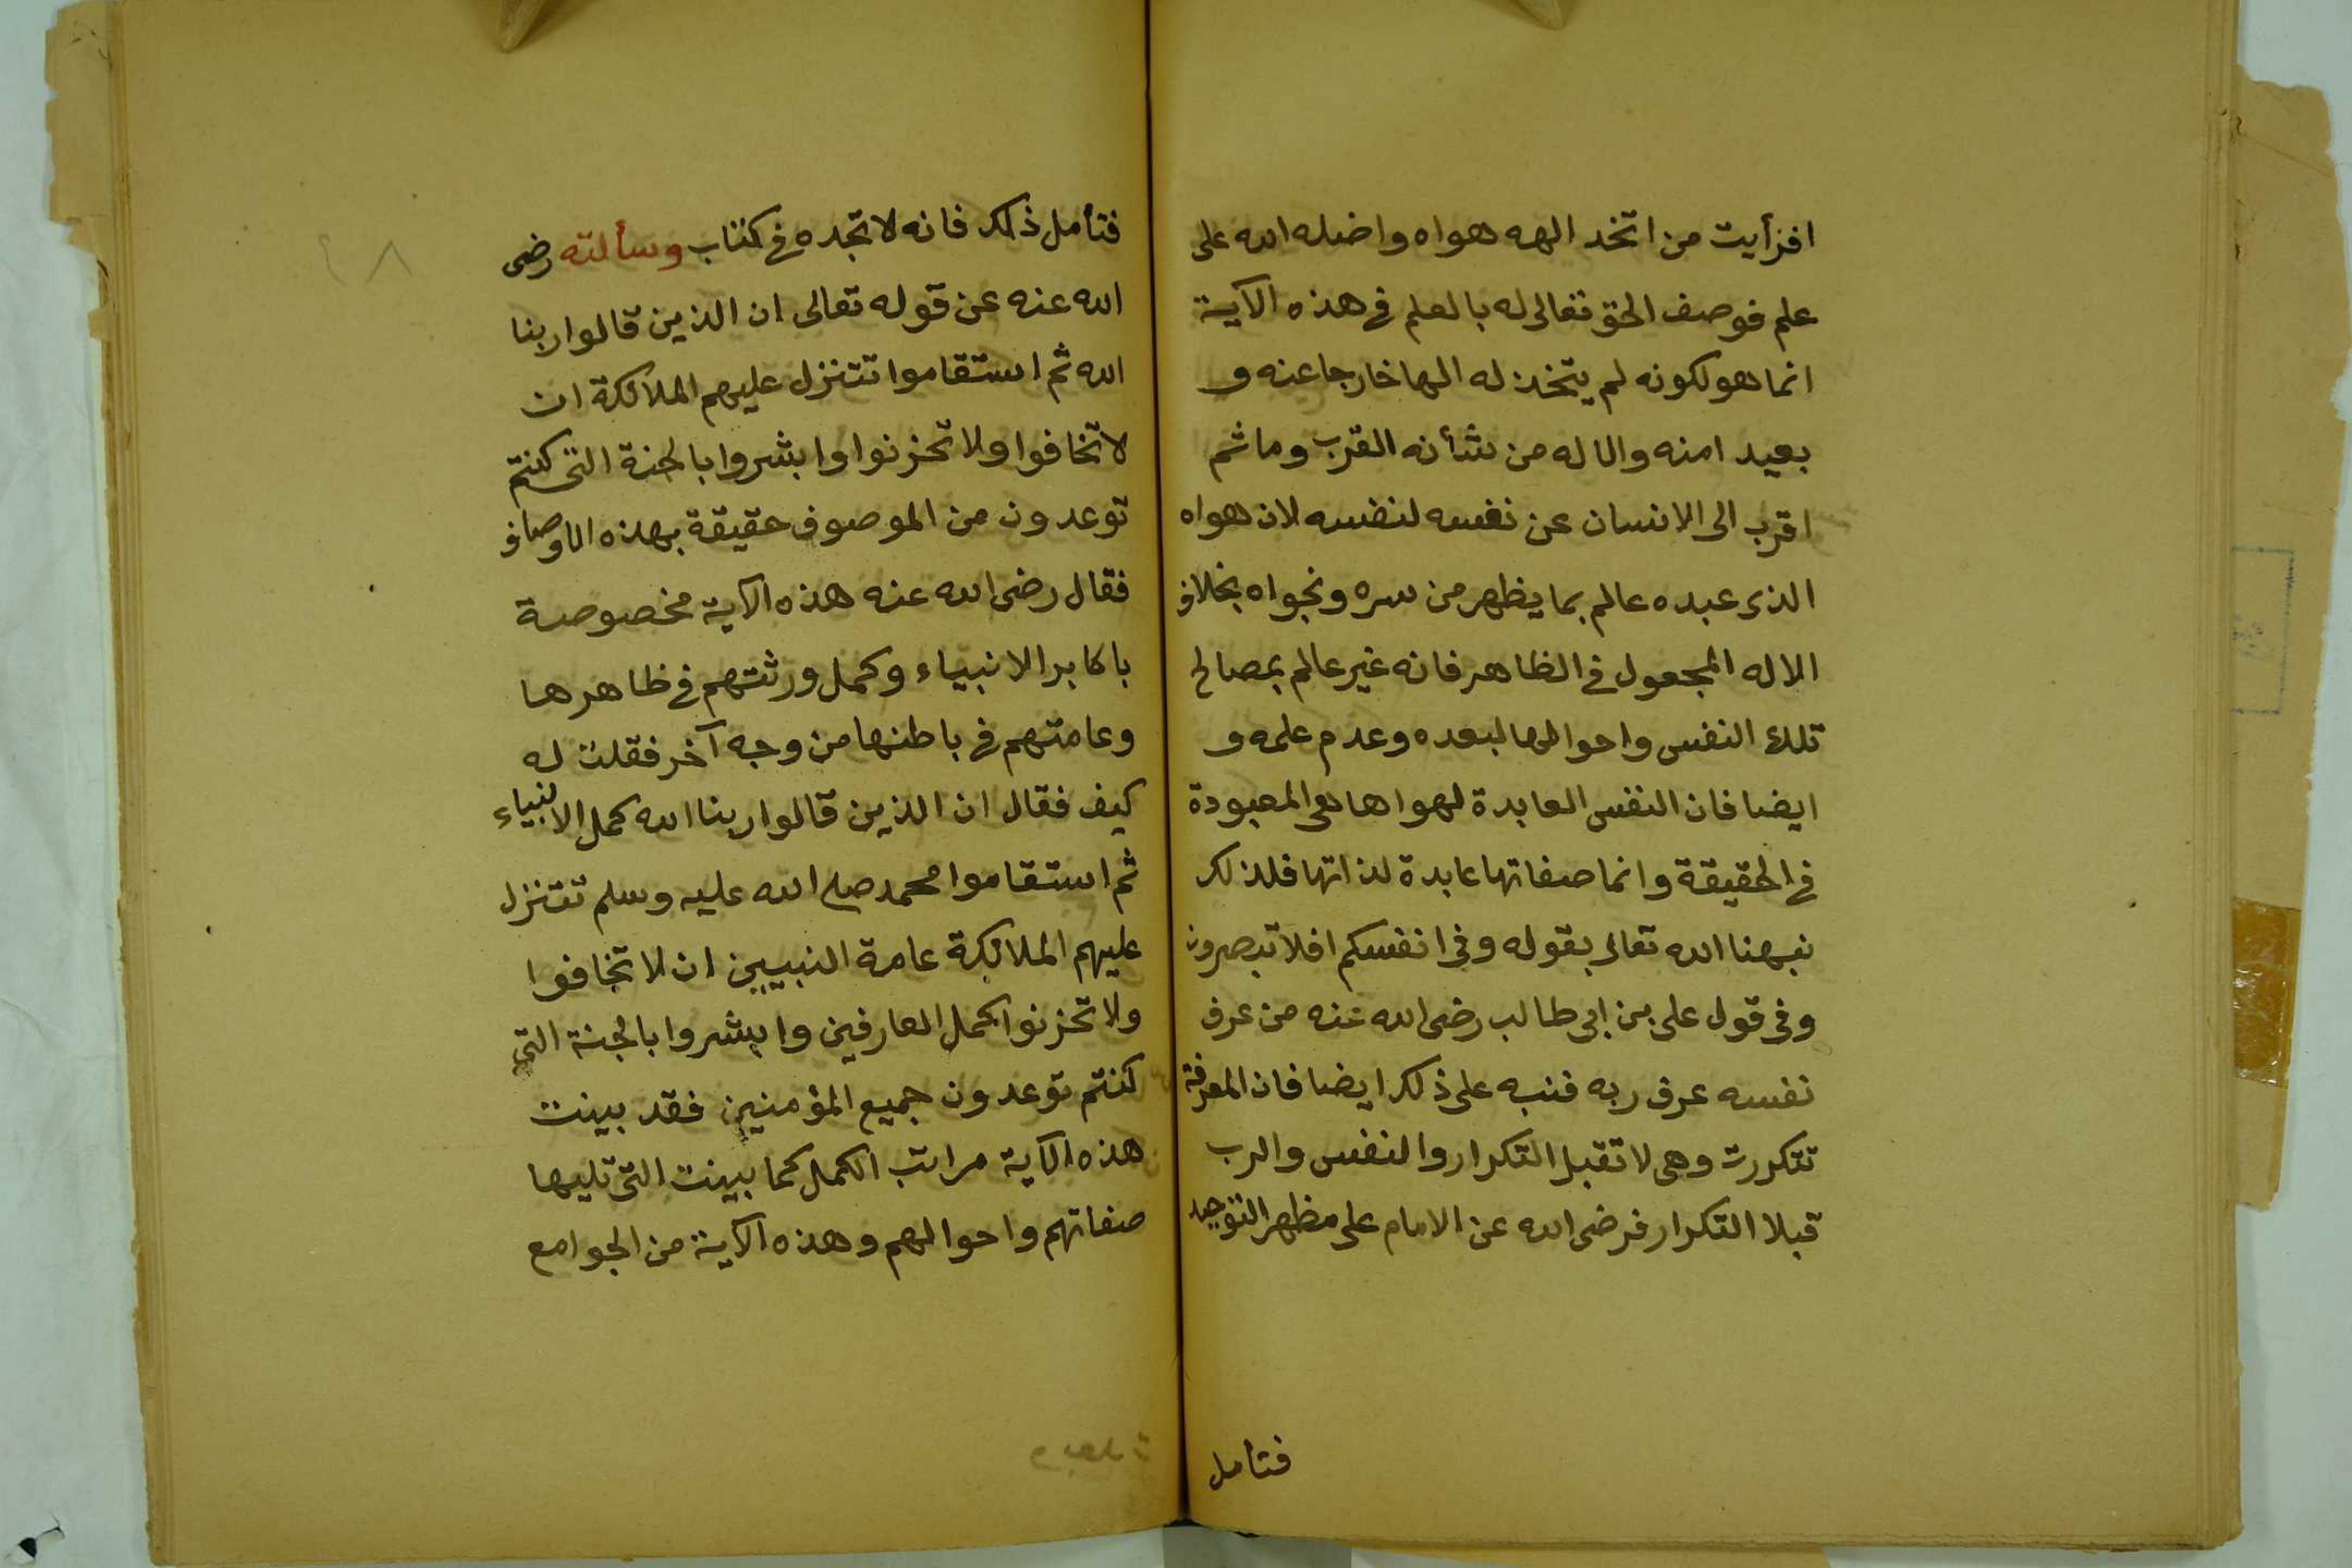 افرأيت من اتخد الهه هواه واضله الله على
علم فوصف الحق تعالى له بالعلم في هذه الآية
انما هو لكونه لم يتخذ له الها خارجا عنه و
بعيدا منه والاله من شأنه القرب وما ثم
اقرب الى الانسان عن نفسه لنفسه لان هواه
الذى عبده عالم بما يظهر من سره ونجواه بخلاف
الاله المجعول في الظاهر فانه غير عالم بمصالح
تلك النفس واحوالها لبعده وعدم علمه و
ايضا فان النفس العابدة لهواها هى المعبودة
في الحقيقة وانما صفاتها عابدة لذاتها فلذلك
نبهنا الله تعالى بقوله وفى انفسكم افلا تبصرون
وفى قول على بن ابى طالب رضى الله عنه من عرف
نفسه عرف ربه فنبه على ذلك ايضا فان المعرفة
تتكررت وهى لا تقبل التكرار والنفس والرب
قبلا التكرار فرضى الله عن الامام على مظهر التوحيد
فتأمل
٤٨
فتأمل ذلك فانه لا تجده في كتاب وسألته رضى
الله عنه عن قوله تعالى ان الذين قالوا ربنا
الله ثم استقاموا تتنزل عليهم الملائكة ان
لا تخافوا ولا تحزنوا وابشروا بالجنة التى كنتم
توعدون من الموصوف حقيقة بهذه الاوصاف
فقال رضى الله عنه هذه الآية مخصوصة
باكابر الانبياء وكمل ورثتهم في ظاهرها
وعامتهم في باطنها من وجه آخر فقلت له
كيف فقال ان الذين قالوا ربنا الله كمل الانبياء
ثم استقاموا محمد صلى الله عليه وسلم تتنزل
عليهم الملائكة عامة النبيين ان لا تخافوا
ولا تحزنوا كمل العارفين وابشروا بالجنة التى
كنتم توعدون جميع المؤمنين فقد بينت
هذه الآية مراتب الكمل كما بينت التى تليها
صفاتهم واحوالهم وهذه الآية من الجوامع